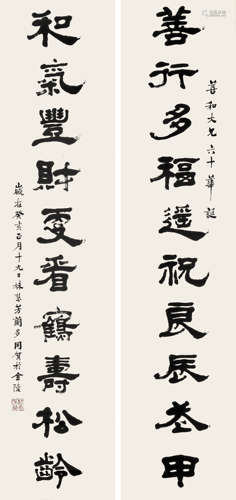 善行多福遥祝良辰花甲
善和大兄六十華誕
和氣豐財更看鶴壽松齡
歲在癸亥正月十九日林慧芳蘭多同賀於金陵